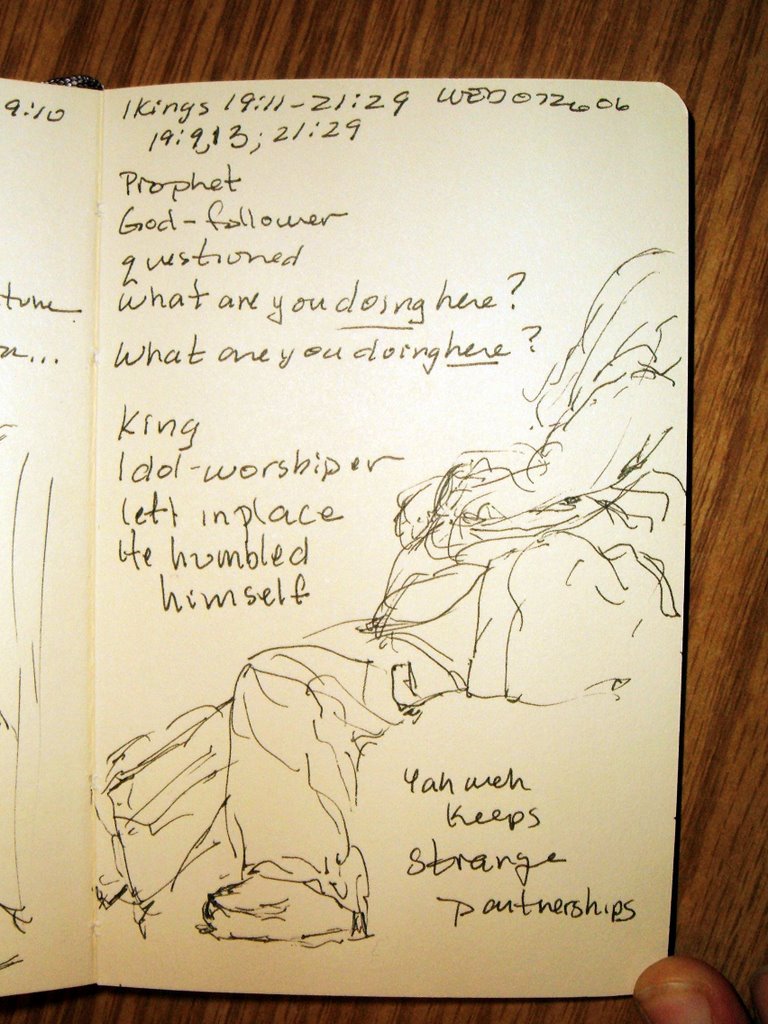 9:10
tune
1Kings 19:11-21:29 WED072606
19:9,13; 21:29
Prophet
God-follower
questioned
What are you doing here?
What are you doing here?
King
Idol-worshiper
left in place
He humbled
himself
Yahweh
keeps
strange
partnerships